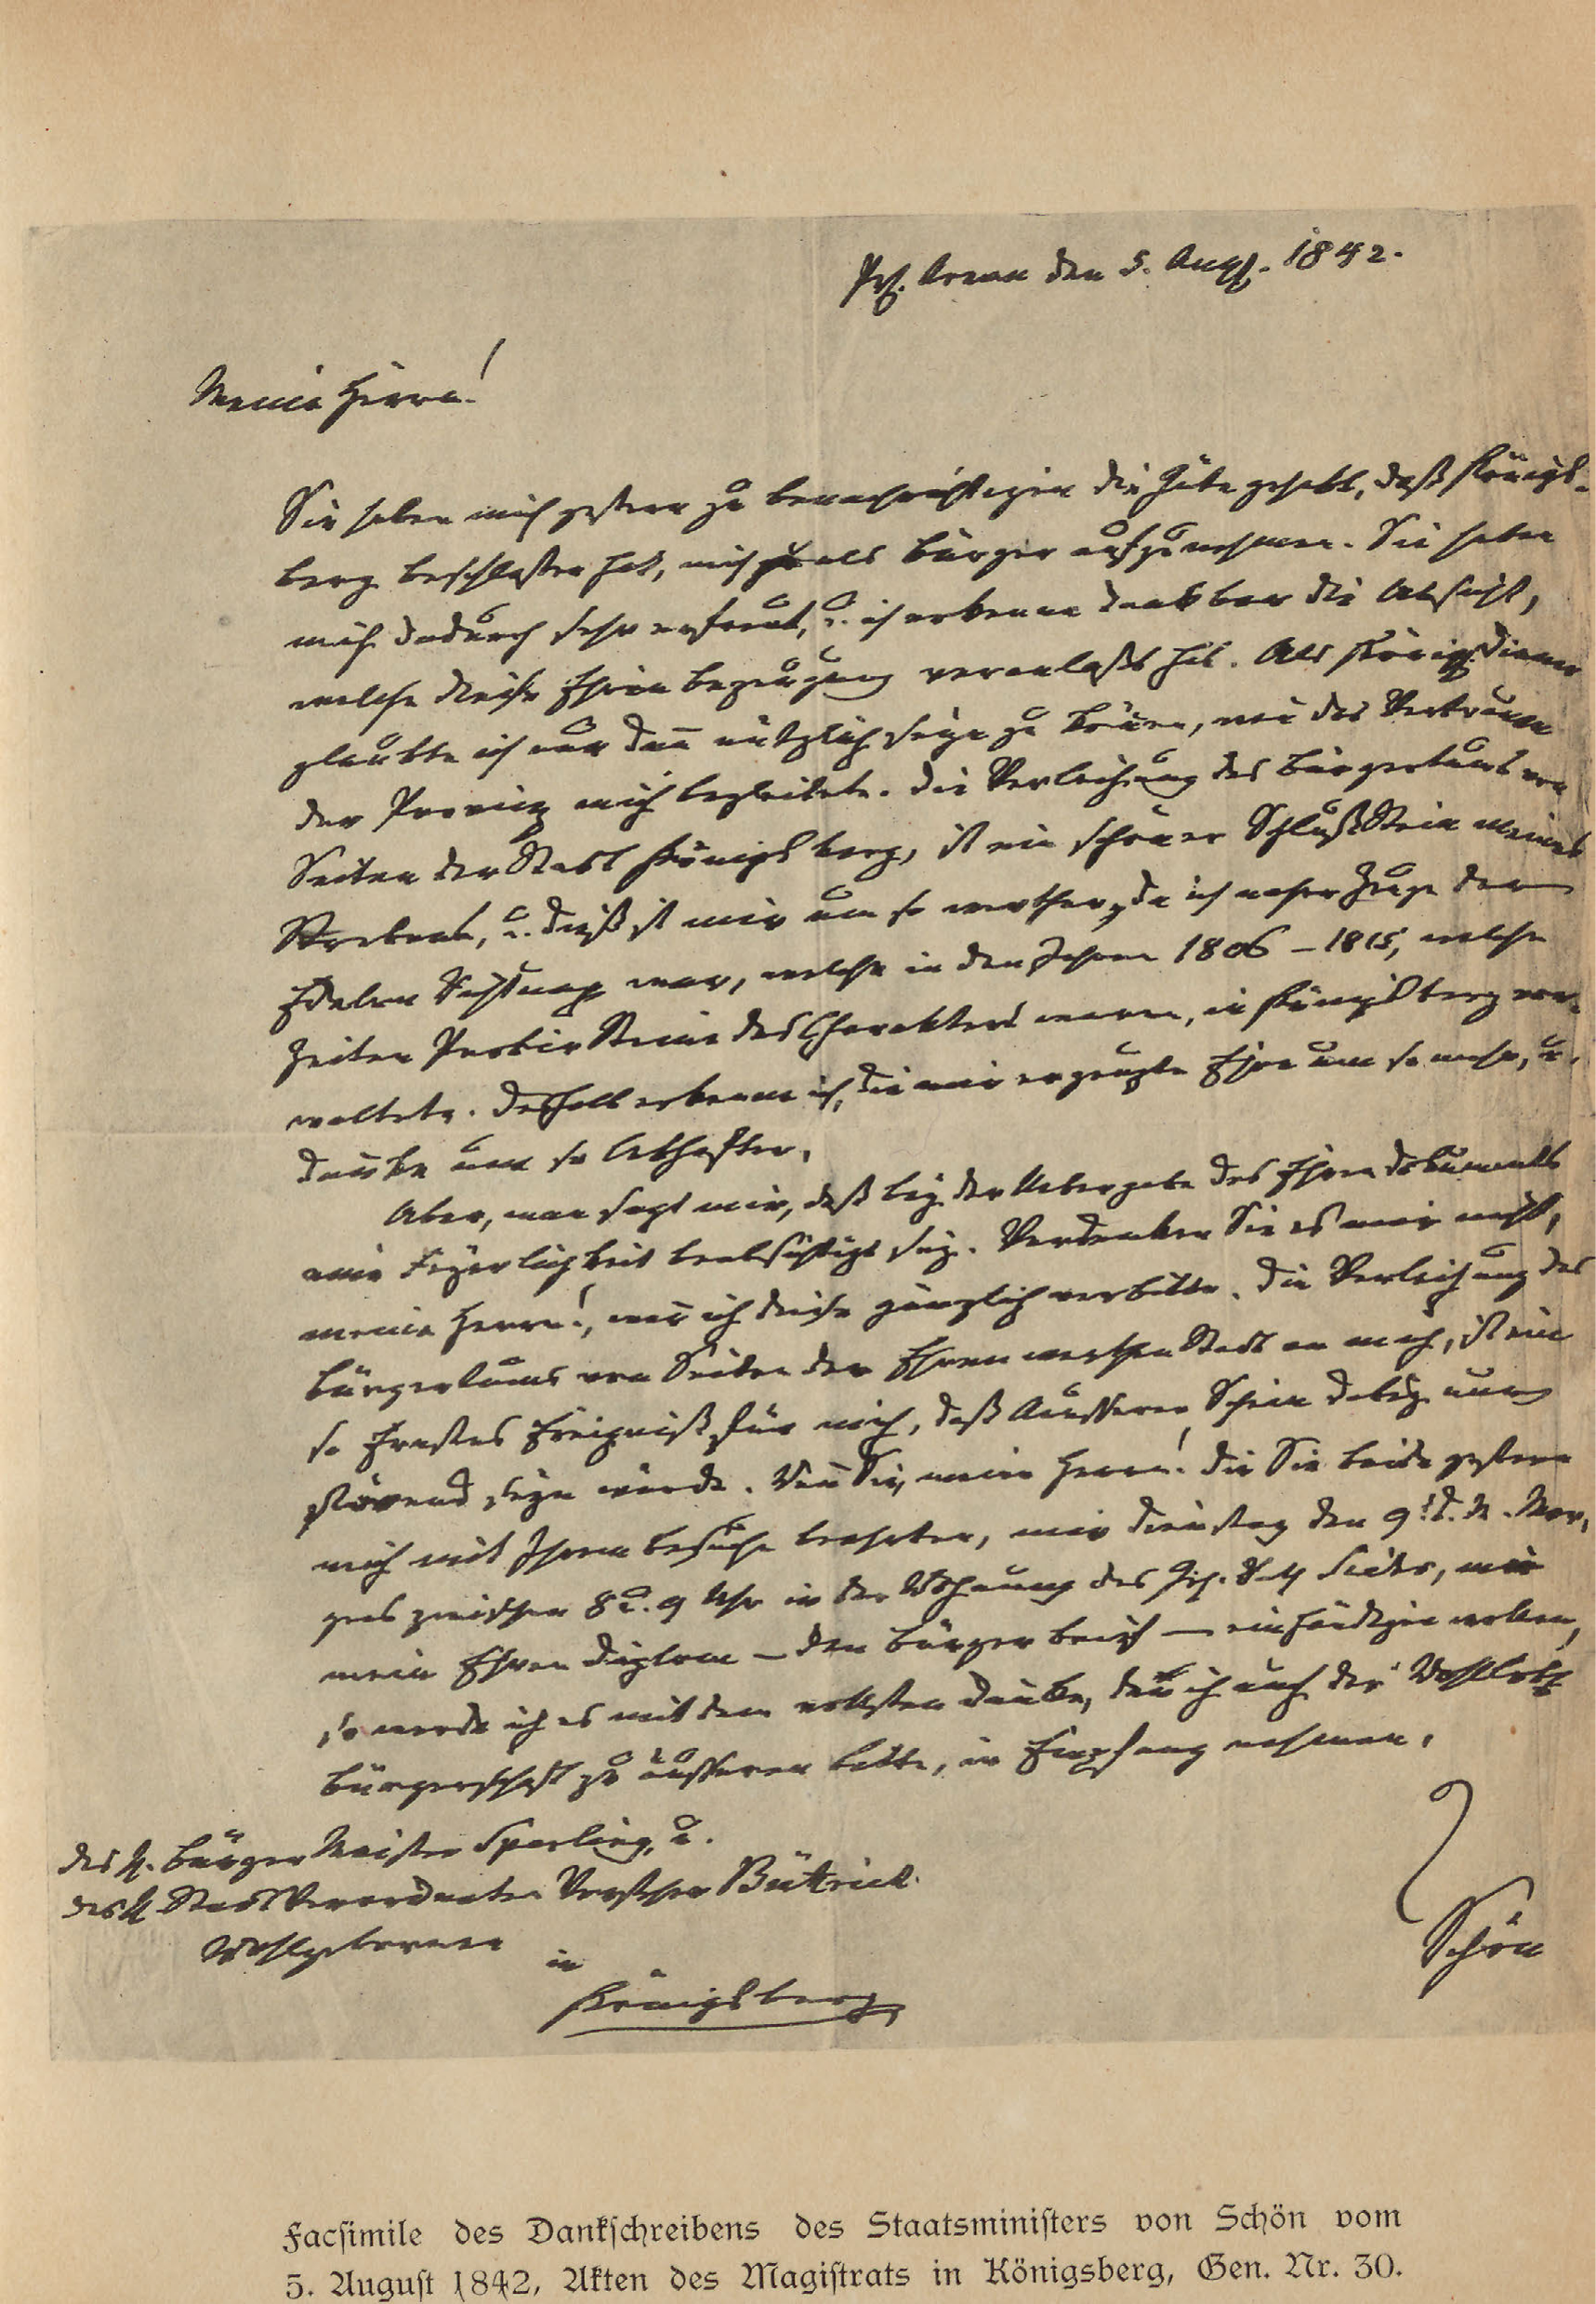 Pr. Arnau den 5. Aug. 1842.
Meine Herren!
Sie haben mich gestern zu benachrichtigen die Güte gehabt, daß Königs-
berg beschlossen hat, mich als Bürger aufzunehmen. Sie haben
mich dadurch sehr erfreut, u. ich erkenne dankbar die Absicht,
welche diese Ehren Bezeugung veranlaßt hat. Als Königs Diener
glaubte ich nur dann nützlich seyn zu können, wenn das Vertrauen
der Provinz mich begleitete. Die Verleihung des Bürgerthums von
Seiten der Stadt Königsberg, ist ein schöner Schluß Stein meines
Strebens, u. dieß ist mir um so werther, da ich naher Zeuge der
Edelen Gesinnung war, welche in den Jahren 1806 – 1815, welche
Zeiten Probier Steine des Charakters waren, in Königsberg vor-
waltete. Deshalb erkenne ich, die mir erzeugte Ehre um so mehr, u.
danke um so lebhafter.
Aber, man sagt mir, daß bey der Uebergabe des Ehren Dokuments
eine Feyerlichkeit beabsichtigt sey. Verdenken Sie es mir nicht,
meine Herren!, wenn ich diese gänzlich verbitte. Die Verleihung des
Bürgerthums von Seiten der Ehrenwerthen Stadt an mich, ist ein
so Ernstes Ereigniß für mich, daß Äusserer Schein dabey nur
störend seyn würde. Wenn Sie, meine Herren! die Sie beide gestern
mich mit Ihrem Besuche beehrten, mir Dienstag den 9. d. M. Mor-
gens zwischen 8 u. 9 Uhr in der Wohnung des mir
mein Ehren Diplom – den Bürger brief – einhändigen wollen,
so werde ich es mit dem vollsten Danke, den ich auch der Wohllobl.
Bürgerschaft zu äusseren bitte, in Empfang nehmen.
Schön
Des H. Bürger Meister Sperling, u.
des H. Stadt Verordneten Vorsteher Bütrich
Wohlgeboren
in
Königsberg
Facsimile des Dankschreibens des Staatsministers von Schön vom
5. August 1842, Akten des Magistrats in Königsberg, Gen. Nr. 30.